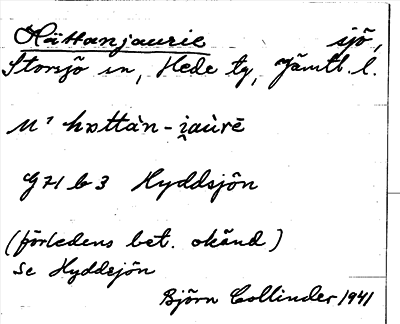 Hättanjaurie sjö,
Storsjö sn, Hede tg, Jämtl. l.
M¹ hɒttàn-i̯aùrē
G71 b3 Hyddsjön
(förledens bet. okänd)
se Hyddsjön
Björn Collinder 1941